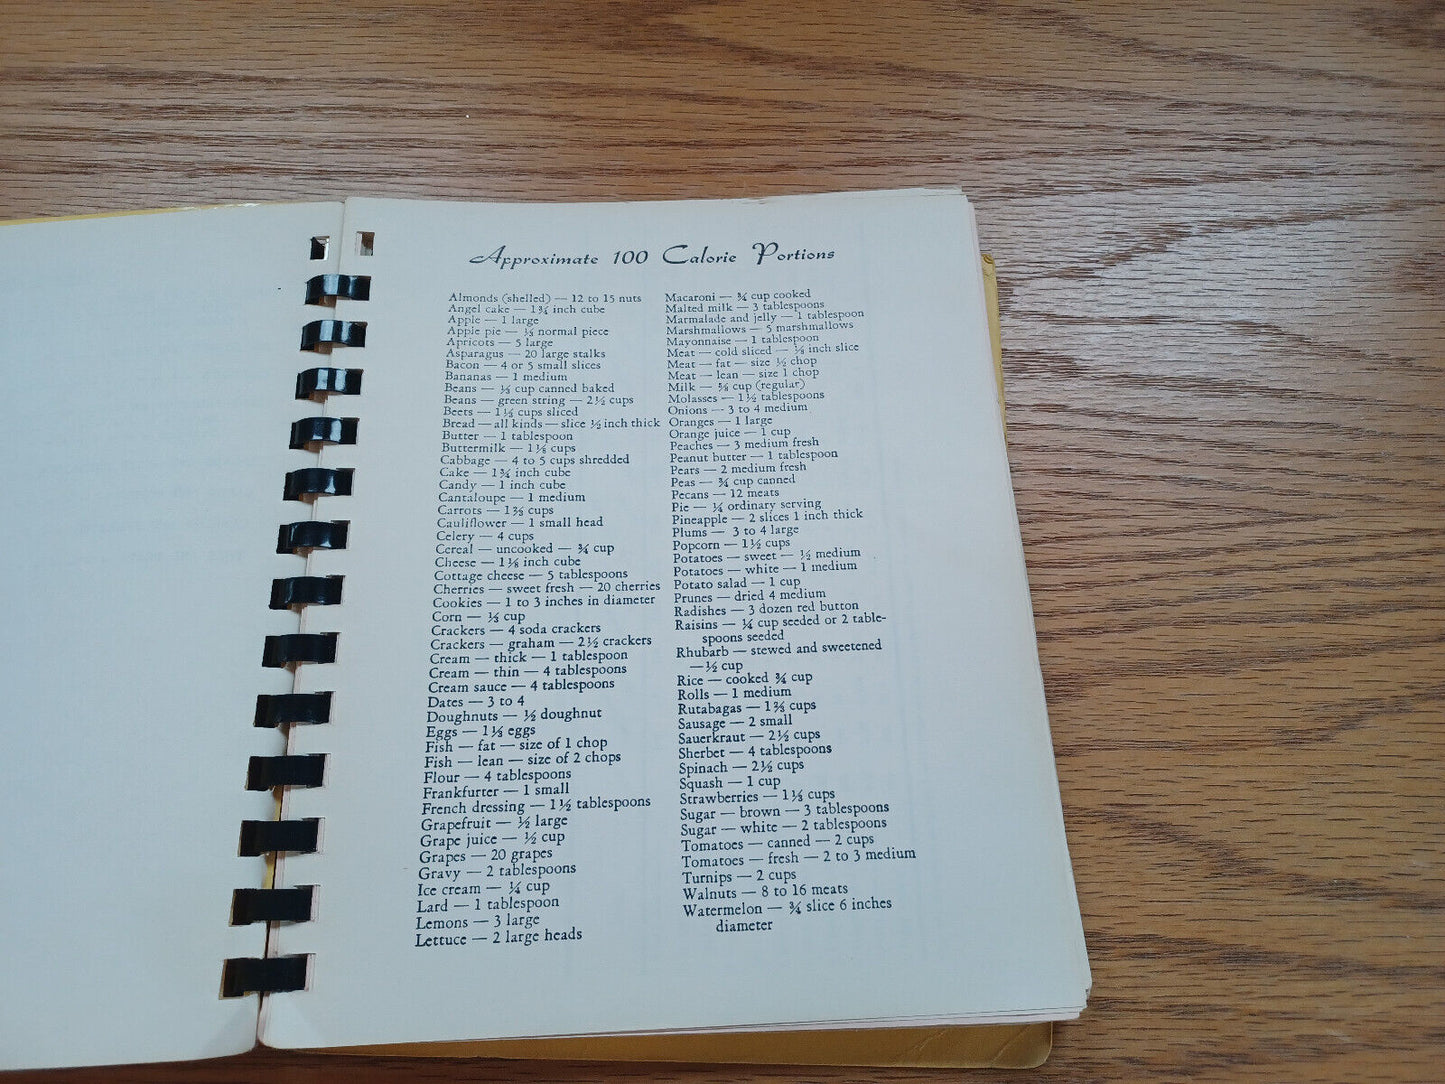 Approximate 100 Calorie Portions
Almonds (shelled) — 12 to 15 nuts
Angel cake — 1¾ inch cube
Apple — 1 large
Apple pie — ⅓ normal piece
Apricots — 5 large
Asparagus — 20 large stalks
Bacon — 4 or 5 small slices
Bananas — 1 medium
Beans — ⅓ cup canned baked
Beans — green string — 2½ cups
Beets — 1⅓ cups sliced
Bread — all kinds — slice ½ inch thick
Butter — 1 tablespoon
Buttermilk — 1⅛ cups
Cabbage — 4 to 5 cups shredded
Cake — 1¾ inch cube
Candy — 1 inch cube
Cantaloupe — 1 medium
Carrots — 1⅔ cups
Cauliflower — 1 small head
Celery — 4 cups
Cereal — uncooked — ¾ cup
Cheese — 1⅛ inch cube
Cottage cheese — 5 tablespoons
Cherries — sweet fresh — 20 cherries
Cookies — 1 to 3 inches in diameter
Corn — ⅓ cup
Crackers — 4 soda crackers
Crackers — graham — 2½ crackers
Cream — thick — 1 tablespoon
Cream — thin — 4 tablespoons
Cream sauce — 4 tablespoons
Dates — 3 to 4
Doughnuts — ½ doughnut
Eggs — 1⅓ eggs
Fish — fat — size of 1 chop
Fish — lean — size of 2 chops
Flour — 4 tablespoons
Frankfurter — 1 small
French dressing — 1½ tablespoons
Grapefruit — ½ large
Grape juice — ½ cup
Grapes — 20 grapes
Gravy — 2 tablespoons
Ice cream — ¼ cup
Lard — 1 tablespoon
Lemons — 3 large
Lettuce — 2 large heads
Macaroni — ¾ cup cooked
Malted milk — 3 tablespoons
Marmalade and jelly — 1 tablespoon
Marshmallows — 5 marshmallows
Mayonnaise — 1 tablespoon
Meat — cold sliced — ⅛ inch slice
Meat — fat — size ½ chop
Meat — lean — size 1 chop
Milk — ⅝ cup (regular)
Molasses — 1½ tablespoons
Onions — 3 to 4 medium
Oranges — 1 large
Orange juice — 1 cup
Peaches — 3 medium fresh
Peanut butter — 1 tablespoon
Pears — 2 medium fresh
Peas — ¾ cup canned
Pecans — 12 meats
Pie — ¼ ordinary serving
Pineapple — 2 slices 1 inch thick
Plums — 3 to 4 large
Popcorn — 1½ cups
Potatoes — sweet — ½ medium
Potatoes — white — 1 medium
Potato salad — 1 cup
Prunes — dried 4 medium
Radishes — 3 dozen red button
Raisins — ¼ cup seeded or 2 table-
spoons seeded
Rhubarb — stewed and sweetened
— ½ cup
Rice — cooked ¾ cup
Rolls — 1 medium
Rutabagas — 1⅔ cups
Sausage — 2 small
Sauerkraut — 2½ cups
Sherbet — 4 tablespoons
Spinach — 2½ cups
Squash — 1 cup
Strawberries — 1⅓ cups
Sugar — brown — 3 tablespoons
Sugar — white — 2 tablespoons
Tomatoes — canned — 2 cups
Tomatoes — fresh — 2 to 3 medium
Turnips — 2 cups
Walnuts — 8 to 16 meats
Watermelon — ¾ slice 6 inches
diameter